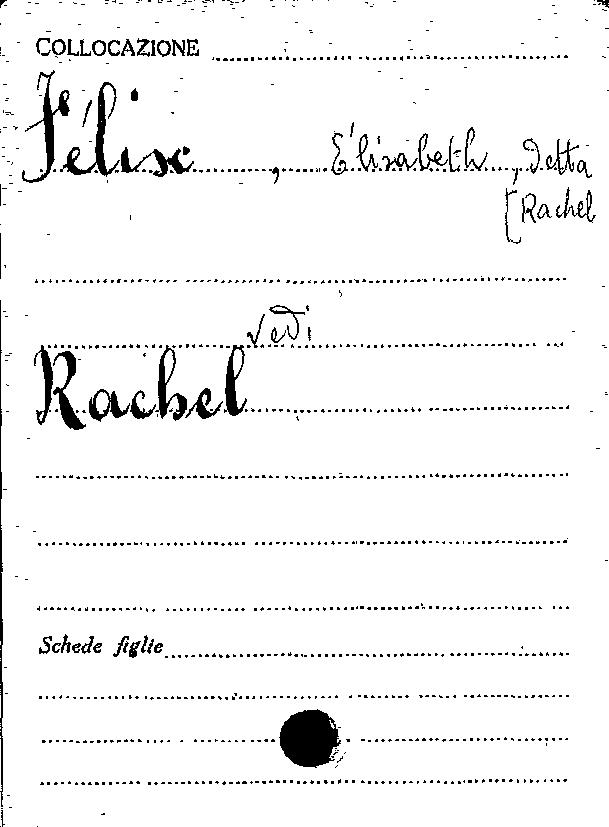 COLLOCAZIONE
Félix, Élisabeth, detta
[Rachel
vedi
Rachel
Schede figlie